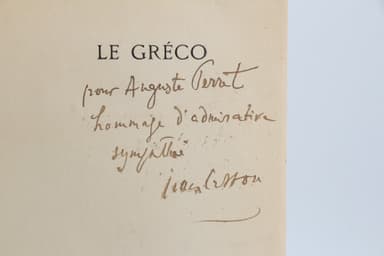 LE GRÉCO
pour Auguste Perret
hommage d'admirative
sympathie
Jean Cassou